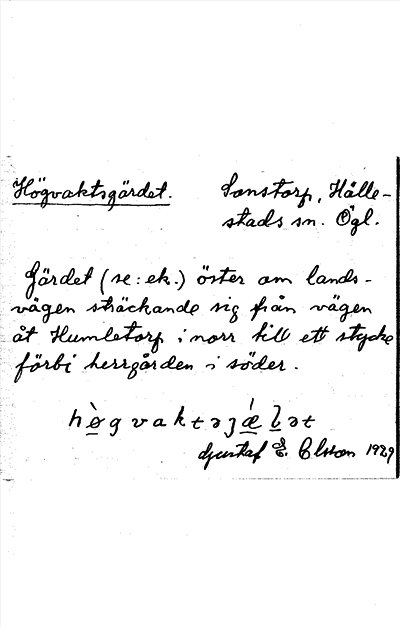 Högvaktsgärdet. Sonstorp, Hälle-
stads sn. Ögl.
Gärdet (se: ek.) öster om lands-
vägen sträckande sig från vägen
åt Humletorp i norr till ett stycke
förbi herrgården i söder.
hø̀gvaktəȷǽlət
Gustaf E. Olsson 1929